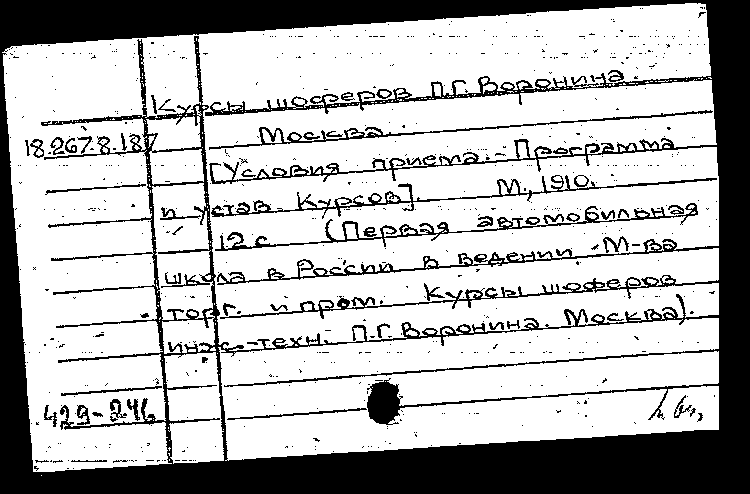 Курсы шоферов П.Г. Воронина.
18.267.8.187 Москва.
[Условия приема. – Программа
и устав Курсов]. М., 1910.
12 с (Первая автомобильная
школа в России в ведении М-ва
торг. и пром. Курсы шоферов
инж.-техн. П.Г. Воронина. Москва).
429-246